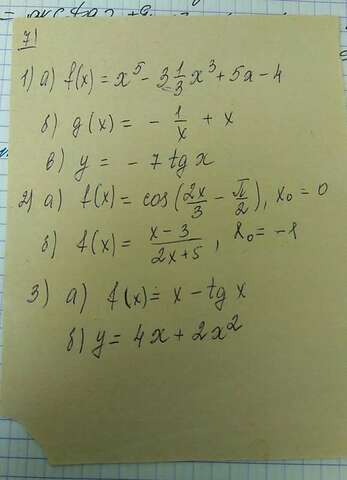 7|
1) а) f(x) = x⁵ - 3 1/3 x³ + 5x - 4
б) g(x) = - 1/x + x
в) y = - 7 tg x
2) а) f(x) = cos(2x/3 - π/2), x₀ = 0
б) f(x) = x-3/2x+5, x₀ = -1
3) а) f(x) = x - tg x
б) y = 4x + 2x²